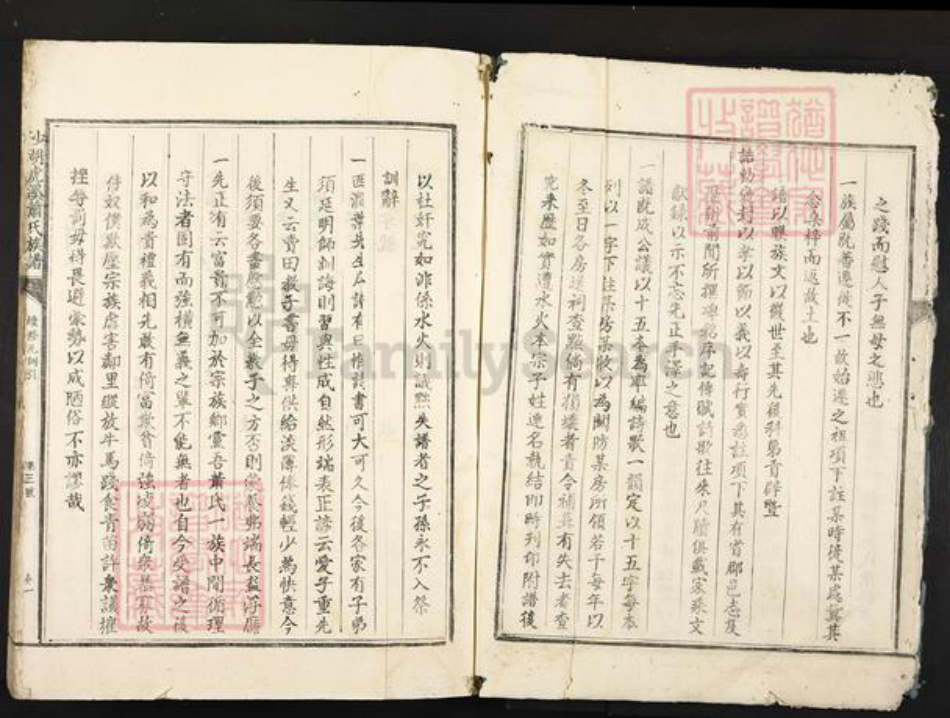 之踐而慰人子無母之悲也
一族屬既蕃遷徙不一故始遷之祖項下註某時徙某處冀其
念桑梓而返故土也
譜以聯族文以獻世至其先後科第貢辟暨
誥勅貤封以孝以節以義以壽行實悉註項下其有省郡邑志及
前聞所撰碑銘序記傳賦詩歌往來尺牘俱載家乘文
獻錄以示不忘先正手澤之意也
一譜既成公議以十五本為率編詩歌一韻定以十五字每本
列以一字下註某房某收以為關防某房所領若干每年以
冬至日各房送祠查點倘有損壞者責令補葺有失去者查
究來歷如實遭水火本宗子姓連名執結即時列印附譜後
以杜奸宄如非係水火則議黜失譜者之子孫永不入祭
訓辭
一西澗先生詩有曰惟詩書可大可久今後各家有子弟
須延明師訓誨則習與性成自然形端表正諺云愛子重先
生又云賣田教子書毋得與供給淡薄俸錢輕少為快意今
後須要各盡慇懃以全教子之方否則
一先正有云富貴不可加於宗族鄉黨吾蕭氏一族中間循理
守法者固有而強橫無義之輩不能無者也自今受譜之後
以和為貴禮義相先敢有倚富欺貧倚強凌弱倚衆暴寡故
侍奴僕欺壓宗族虐害鄰里縱放牛馬踐食青苗許衆議摧
挫每罰毋得畏避豪勢以成陋俗不亦謬哉
沙湖虎溪蕭氏族譜
卷一
FamilySearch